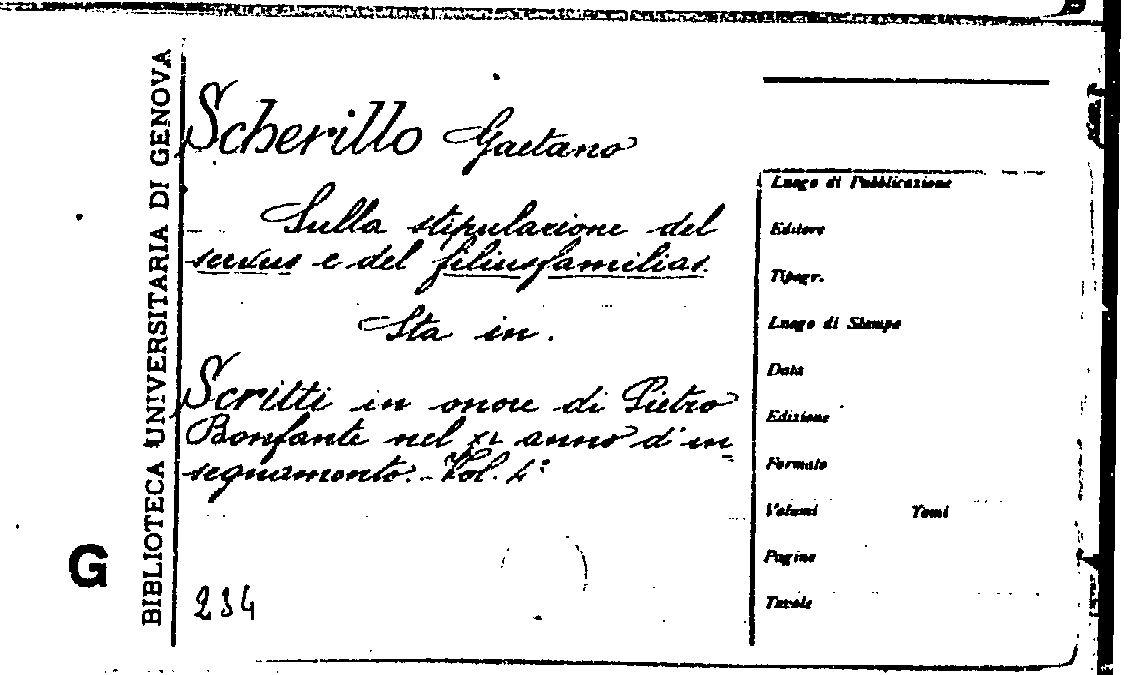 BIBLIOTECA UNIVERSITARIA DI GENOVA
G
Scherillo Gaetano
Sulla stipulazione del
servus e del filiusfamilias.
Sta in.
Scritti in onore di Pietro
Bonfante nel XL anno d'in=
segnamento. Vol. 4°
234
Luogo di Pubblicazione
Editore
Tipogr.
Luogo di Stampa
Data
Edizione
Formato
Volumi Tomi
Pagine
Tavole